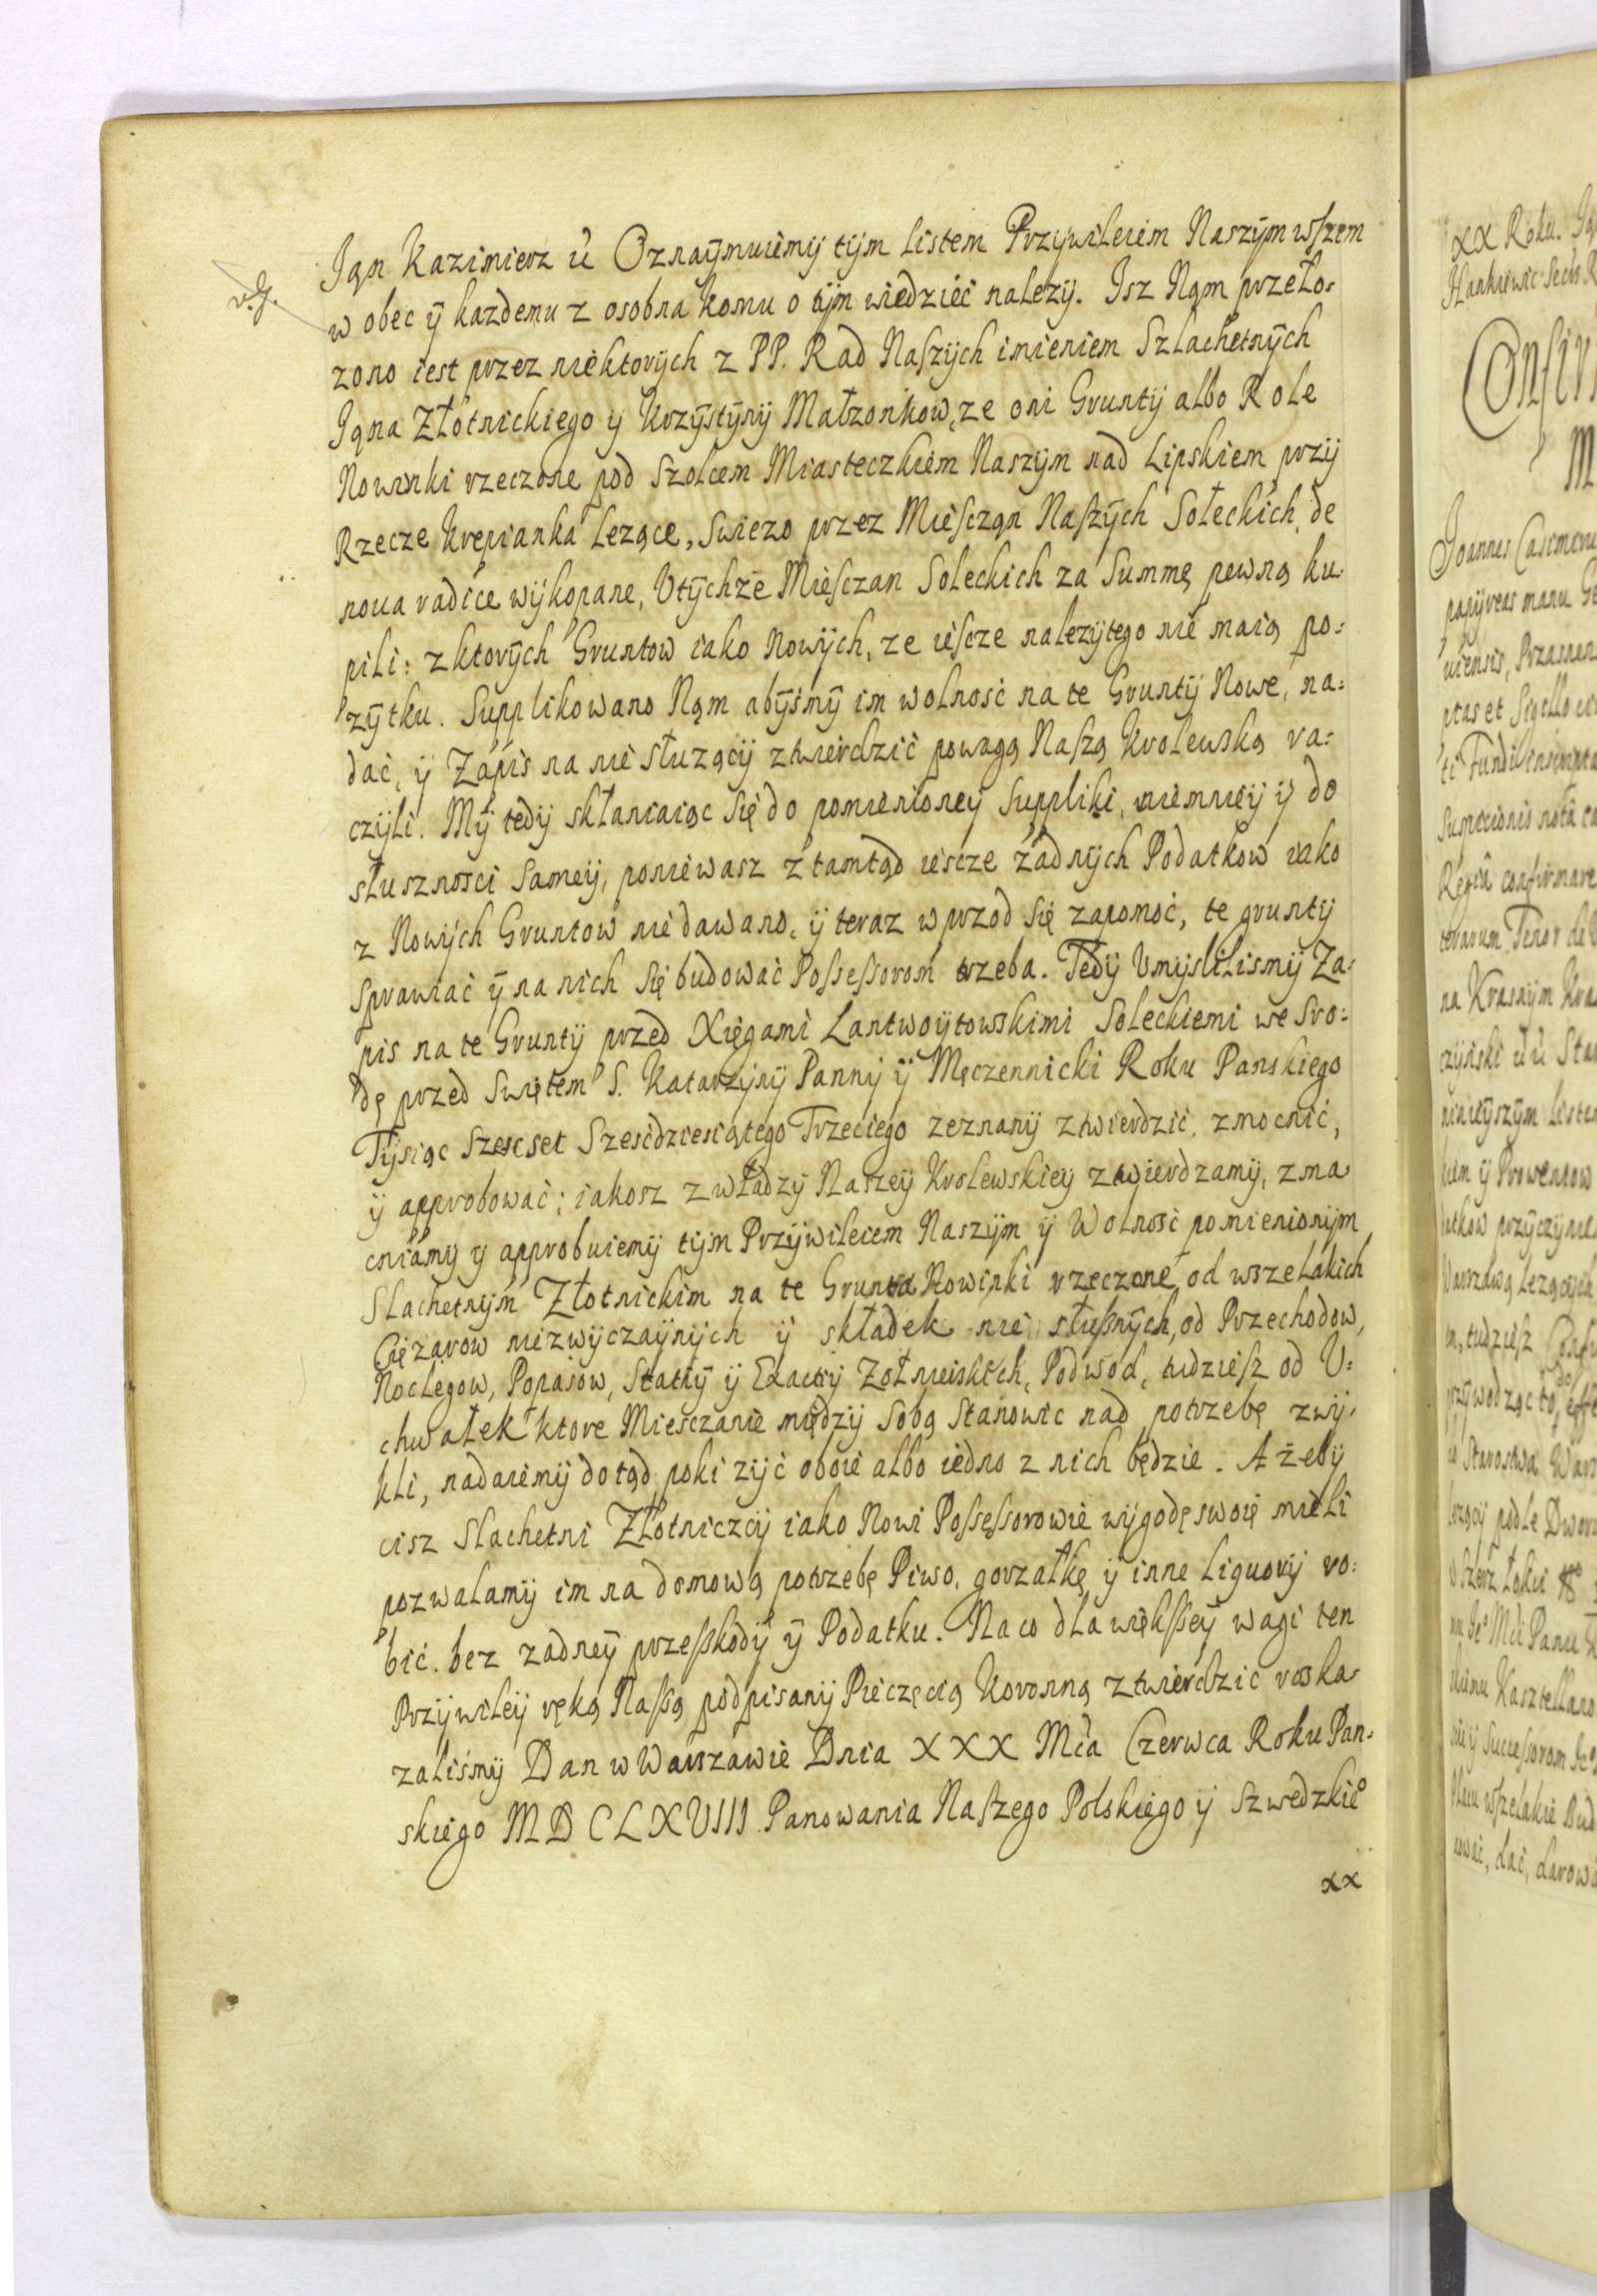 v.g.
Jan Kazimierz ú Oznaÿmuiemÿ tÿm listem Przÿwileiem Naszÿm wszem
w obec ÿ kazdemu z osobna komu o tÿm wiedzieć nalezÿ. Isz Nąm przeło-
zono iest przez niektorÿch z PP. Rad Naszÿch imieniem Szlachetnÿch
Jąna Złotnickiego y Krzÿstÿnÿ Małzonkow, ze oni Gruntÿ albo Role
Nowinki rzeczone pod Szolcem Miasteczkiem Naszÿm nad Lipskiem przÿ
Rzecze Krepianka Lezące, swiezo przez Miesczan Naszÿch Soleckich, de
noua radice wÿkopane, Utÿchże Miesczan Soleckich za Summę pewną ku-
pili: z ktorÿch Gruntow iako Nowÿch, ze iescze nalezÿtego nie maią po-
zÿtku. Supplikowano Nąm abÿsmÿ im wolnosć na te Gruntÿ Nowe, na=
dać, ÿ Zapis na nie słuzącÿ ztwierdzić powagą Naszą Krolewską ra=
czÿli. Mÿ tedÿ skłaniaiąc się do pomienioneÿ suppliki, niemnieÿ ÿ do
słusznosci sameÿ, poniewasz z tamtąd iescze żadnÿch Podatkow iako
z Nowÿch Gruntow nie dawano, ÿ teraz wprzod się zapomoć, te gruntÿ
sprawiać ÿ na nich się budować Possessorom trzeba. Tedÿ UmÿsliLismÿ Za-
pis na te Gruntÿ przed Xięgami Lantwoÿtowskimi Soleckiemi we Sro=
dę przed Swiętem S. Katarzÿnÿ Pannÿ ÿ Męczennicki Roku Panskiego
Tÿsiąc Szescset Szescdziesiątego Trzeciego zeznanÿ ztwierdzić, zmocnić,
ÿ approbować; iakosz z władzÿ Naszeÿ Krolewskieÿ ztwierdzamÿ, zma
cniamÿ y approbuiemÿ tÿm Przÿwileiem Naszÿm ÿ Wolność pomienionÿm
Slachetnÿm Złotnickim na te Grunta Nowinki rzeczone, od wszelakich
Cięzarow niezwÿczaÿnÿch ÿ składek nie słusznÿch, od Przechodow,
Noclegow, Popasow, Statiÿ ÿ Exactiÿ Zołnierskich, Podwod, tudziesz od U=
chwałek ktore Miesczanie międzÿ Sobą Stanowic nad potrzebę zwÿ-
kli, nadaiemÿ dotąd poki zÿć oboie albo iedno z nich będzie. A żebÿ
cisz Slachetni Złotniczcÿ iako Nowi Possessorowie wÿgodę swoię mieli
pozwalamÿ im na domową potrzebę Piwo, gorzałkę ÿ inne Liquorÿ ro=
bić. bez zadneÿ przeszkodÿ ÿ Podatku. Na co dla większeÿ wagi ten
Przÿwileÿ ręką Naszą podpisanÿ Pieczęcią Koronną ztwierdzic roska-
zaliśmÿ Dan w Warszawie Dnia XXX Mca Czerwca Roku Pan-
skiego MDCLXVIII Panowania Naszego Polskiego ÿ Szwedzkie°
xx
xx Roku. Ja
Hankiewic Secrs R
Confir
M
Joannes Casimerus
papÿreas manu Ge
uiensis, Przasnen
ptas et Sigillo
Suspicionis notâ ca
Regiâ confirmare
terarum Tenor de
na Krasnÿm Kra
czÿnski úú Sta
ninieÿszÿm Liste
kiem ÿ Prowentow
datkow przÿczÿnie
Warszawą Lezącÿch
tudziesz Confi
przÿwodząc to, do effe
Starostwa Wars
lezącÿ podle Dworu
w szerz łokci
Je° Mći Panu
skiemu Kasztellano
ÿ Successorom Je°
Placu wszelakie Bud
nować, dać, darowa